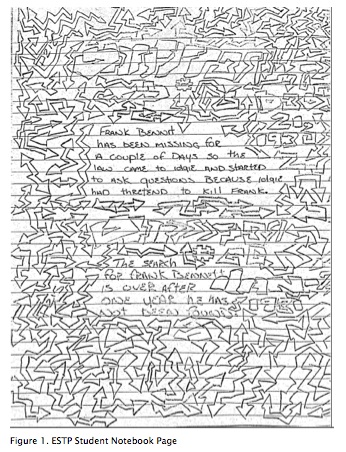 FRANK BENNIT
HAS BEEN MISSING FOR
A COUPLE OF DAYS SO THE
LAW CAME TO IDGIE AND STARTED
TO ASK QUESTIONS BECAUSE IDGIE
HAD THRETEND TO KILL FRANK.
THE SEARCH
FOR FRANK BENNETT
IS OVER AFTER
ONE YEAR HE HAS
NOT BEEN
Figure 1. ESTP Student Notebook Page